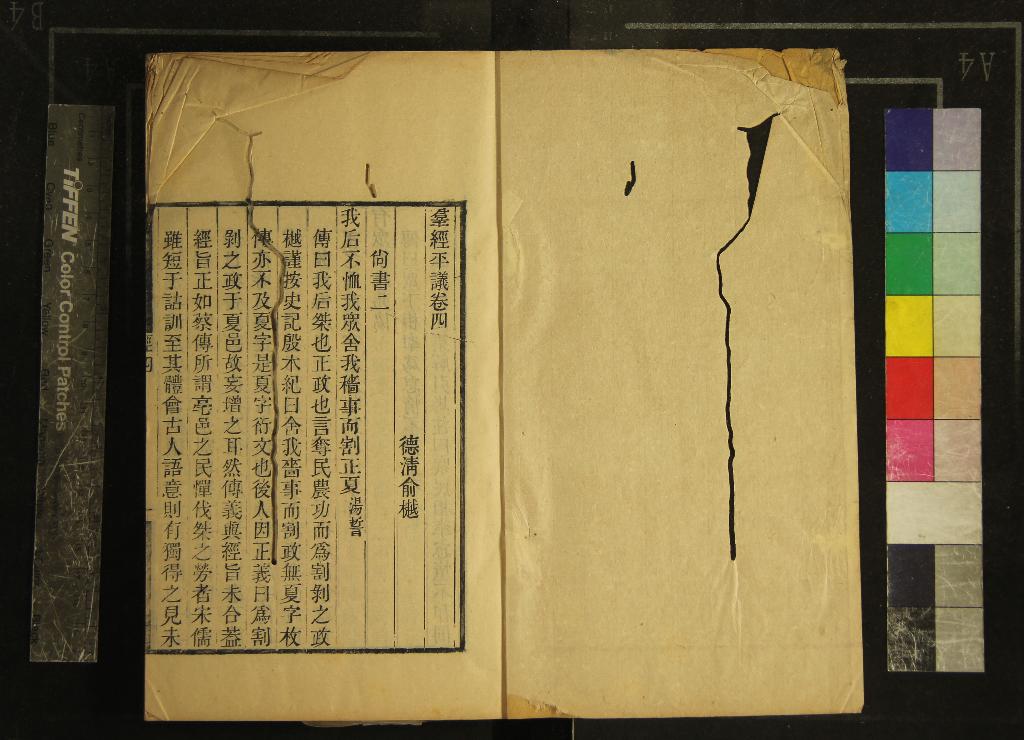 羣經平議卷四
德清俞樾
尚書二
我后不恤我眾舍我穡事而割正夏湯誓
傳曰我后桀也正政也言奪民農功而爲割剝之政
樾謹按史記殷本紀曰舍我嗇事而割政無夏字枚
傳亦不及夏字是夏字衍文也後人因正義曰爲割
剝之政于夏邑故妄增之耳然傳義與經旨未合葢
經旨正如蔡傳所謂亳邑之民憚伐桀之勞者宋儒
雖短于詁訓至其體會古人語意則有獨得之見未
經四
TIFFEN Color Control Patches
Blue
Green
Yellow
A4
A4
B4